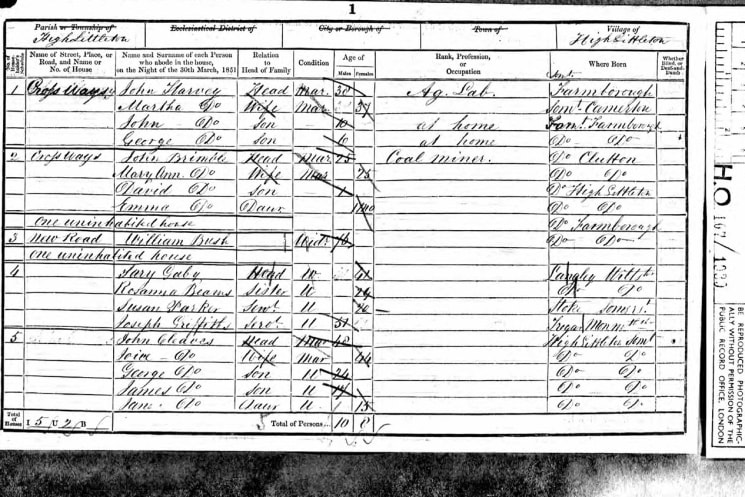 1
Parish or Township of Ecclesiastical District of City or Borough of Town of Village of
High Littleton High Littleton
No. of House-holder's Schedule Name of Street, Place, or Road, and Name or No. of House Name and Surname of each Person who abode in the house, on the Night of the 30th March, 1851 Relation to Head of Family Condition Age of Males Females Rank, Profession, or Occupation Where Born Whether Blind, or Deaf-and-Dumb
1 Cross Ways John Harvey Head Mar. Ag. Lab. Farmborough
Martha Do Wife Mar 37 Somt. Camerton
John Do Son 10 at home Farmborough
George Do Son at home Do Do
2 Cross Ways John Brimble Head Mar. 25 Coal miner. Do Clutton
Mary Ann. Do Wife Mar 25 Do Do
David Do Son 1 Do High Littleton
Emma Do Daur Do Do
One uninhabited house Do Farmborough
3 New Road William Bush Wid. Do Do
One uninhabited house
4 Gaby Head U Langley Wilts
Rosanna Beams Sister U Do Do
Susan Parker Servt. U Stoke Somerst.
Joseph Griffiths Servt. U 31
5 John Cleaves Head Mar 48 High Littleton Somt
Do Wife Mar 44 Do Do
George Do Son U 24 Do Do
James Do Son U Do Do
Jane Do Daur U 15 Do Do
Total of Houses I 5 U 2 B Total of Persons... 10 8
H.O. 167/
BE REPRODUCED PHOTOGRAPHIC-
ALLY WITHOUT PERMISSION OF THE
PUBLIC RECORD OFFICE, LONDON